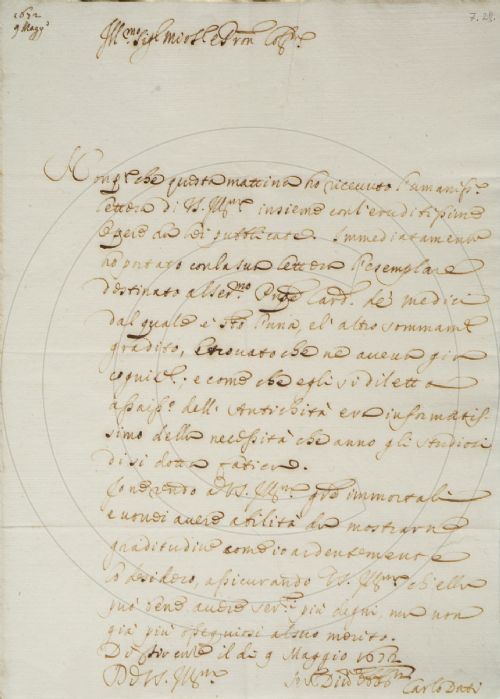 1672
9 Magg.o
7. 28.
Ill.mo Sig.r mio e Pron Col.mo
Non p.a che questa mattina ho ricevuto l'umaniss.a
lettera di V.S. Ill.ma insieme con l'eruditissime
Opere da lei pubblicate. Immediatamente
ho portato con la sua lettera l'esemplare
destinato al Ser.mo Prpe Card. de' Medici
dal quale è sto l'una, e l'altro sommam.te
gradito, e trovato che ne aveva già
e come che egli si diletta
assaiss.o dell'Antichità era informatis-
simo della necessità che anno gli studiosi
di sì dotta fatica.
Io rendo a V.S. Ill.ma gre immortali
e vorrei avere abilità da mostrarne
gratitudine come io ardentemente
lo desidero, assicurando V.S. Ill.ma ch'ella
può bene avere ser.ri più degni, ma non
già più ossequiosi al suo merito.
Di Firenze il dì 9 Maggio 1672
Di V.S. Ill.ma
Carlo Dati